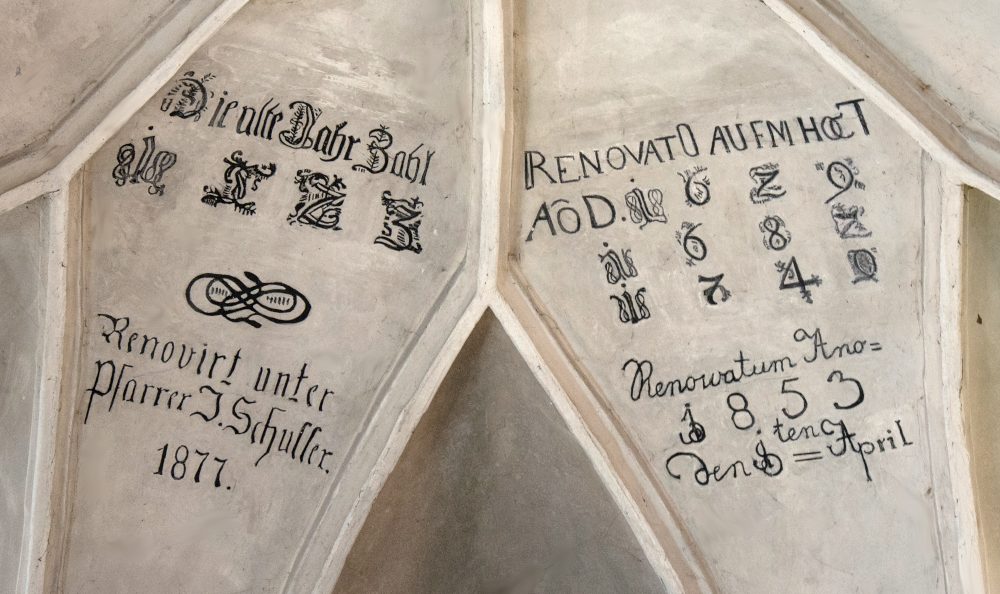 Die alte Jahr Zahl
1522
Renovirt unter
Pfarrer J. Schuller.
1877.
RENOVATO AUFM HOCT
AÔ D. 1629
1682
1740
Renowatum Ano=
1 8. 5 3
Den 1 ten = April